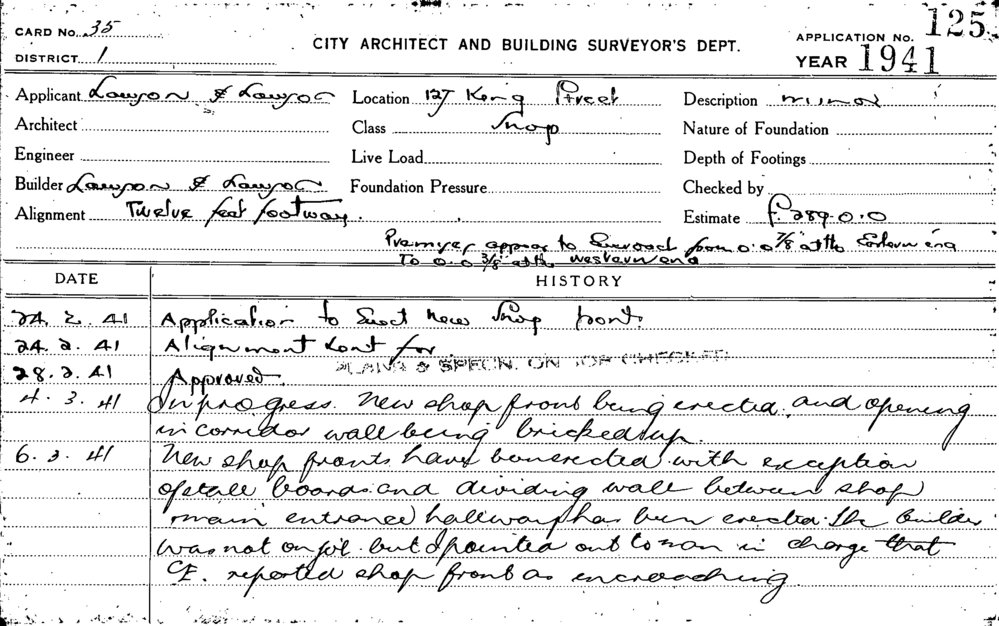 CARD No. 35
DISTRICT 1
CITY ARCHITECT AND BUILDING SURVEYOR'S DEPT.
APPLICATION No. 125
YEAR 1941
Applicant Lawson & Lawson Location 127 King Street Description minor
Architect Class Shop Nature of Foundation
Engineer Live Load Depth of Footings
Builder Lawson & Lawson Foundation Pressure Checked by
Alignment Twelve feet footway. Estimate £289.0.0
Premises appear to Encroach from 0.0 7/8" at the Eastern end
To 0.0 3/8" at the western end
DATE HISTORY
24.2.41 Application to Erect New Shop front.
24.2.41 Alignment sent for
PLANS & SPECN. ON JOB CHECKED
28.2.41 Approved.
4.3.41 In progress. New shop front being erected, and opening
in corridor wall being bricked up.
6.3.41 New shop fronts have been erected with exception
of stall boards and dividing wall between shop
main entrance hallway has been erected. The builder
was not on job but I pointed out to man in charge that
C.E. reported shop front as encroaching.